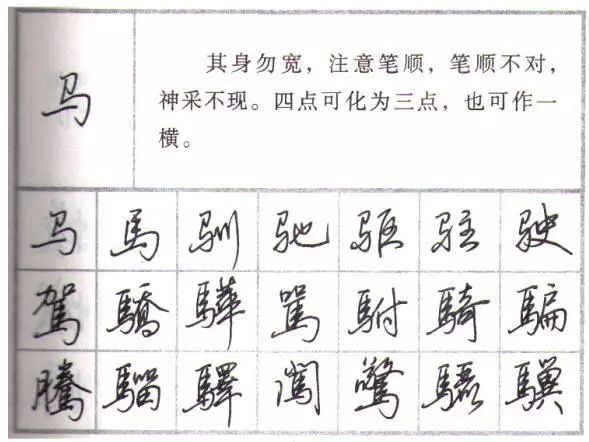 马
其身勿宽，注意笔顺，笔顺不对，
神采不现。四点可化为三点，也可作一
横。
马 馬 驯 驰 驱 驻 驶
駕 驕 驊 駡 駙 騎 騙
騰 騮 驛 闖 驚 驪 驥